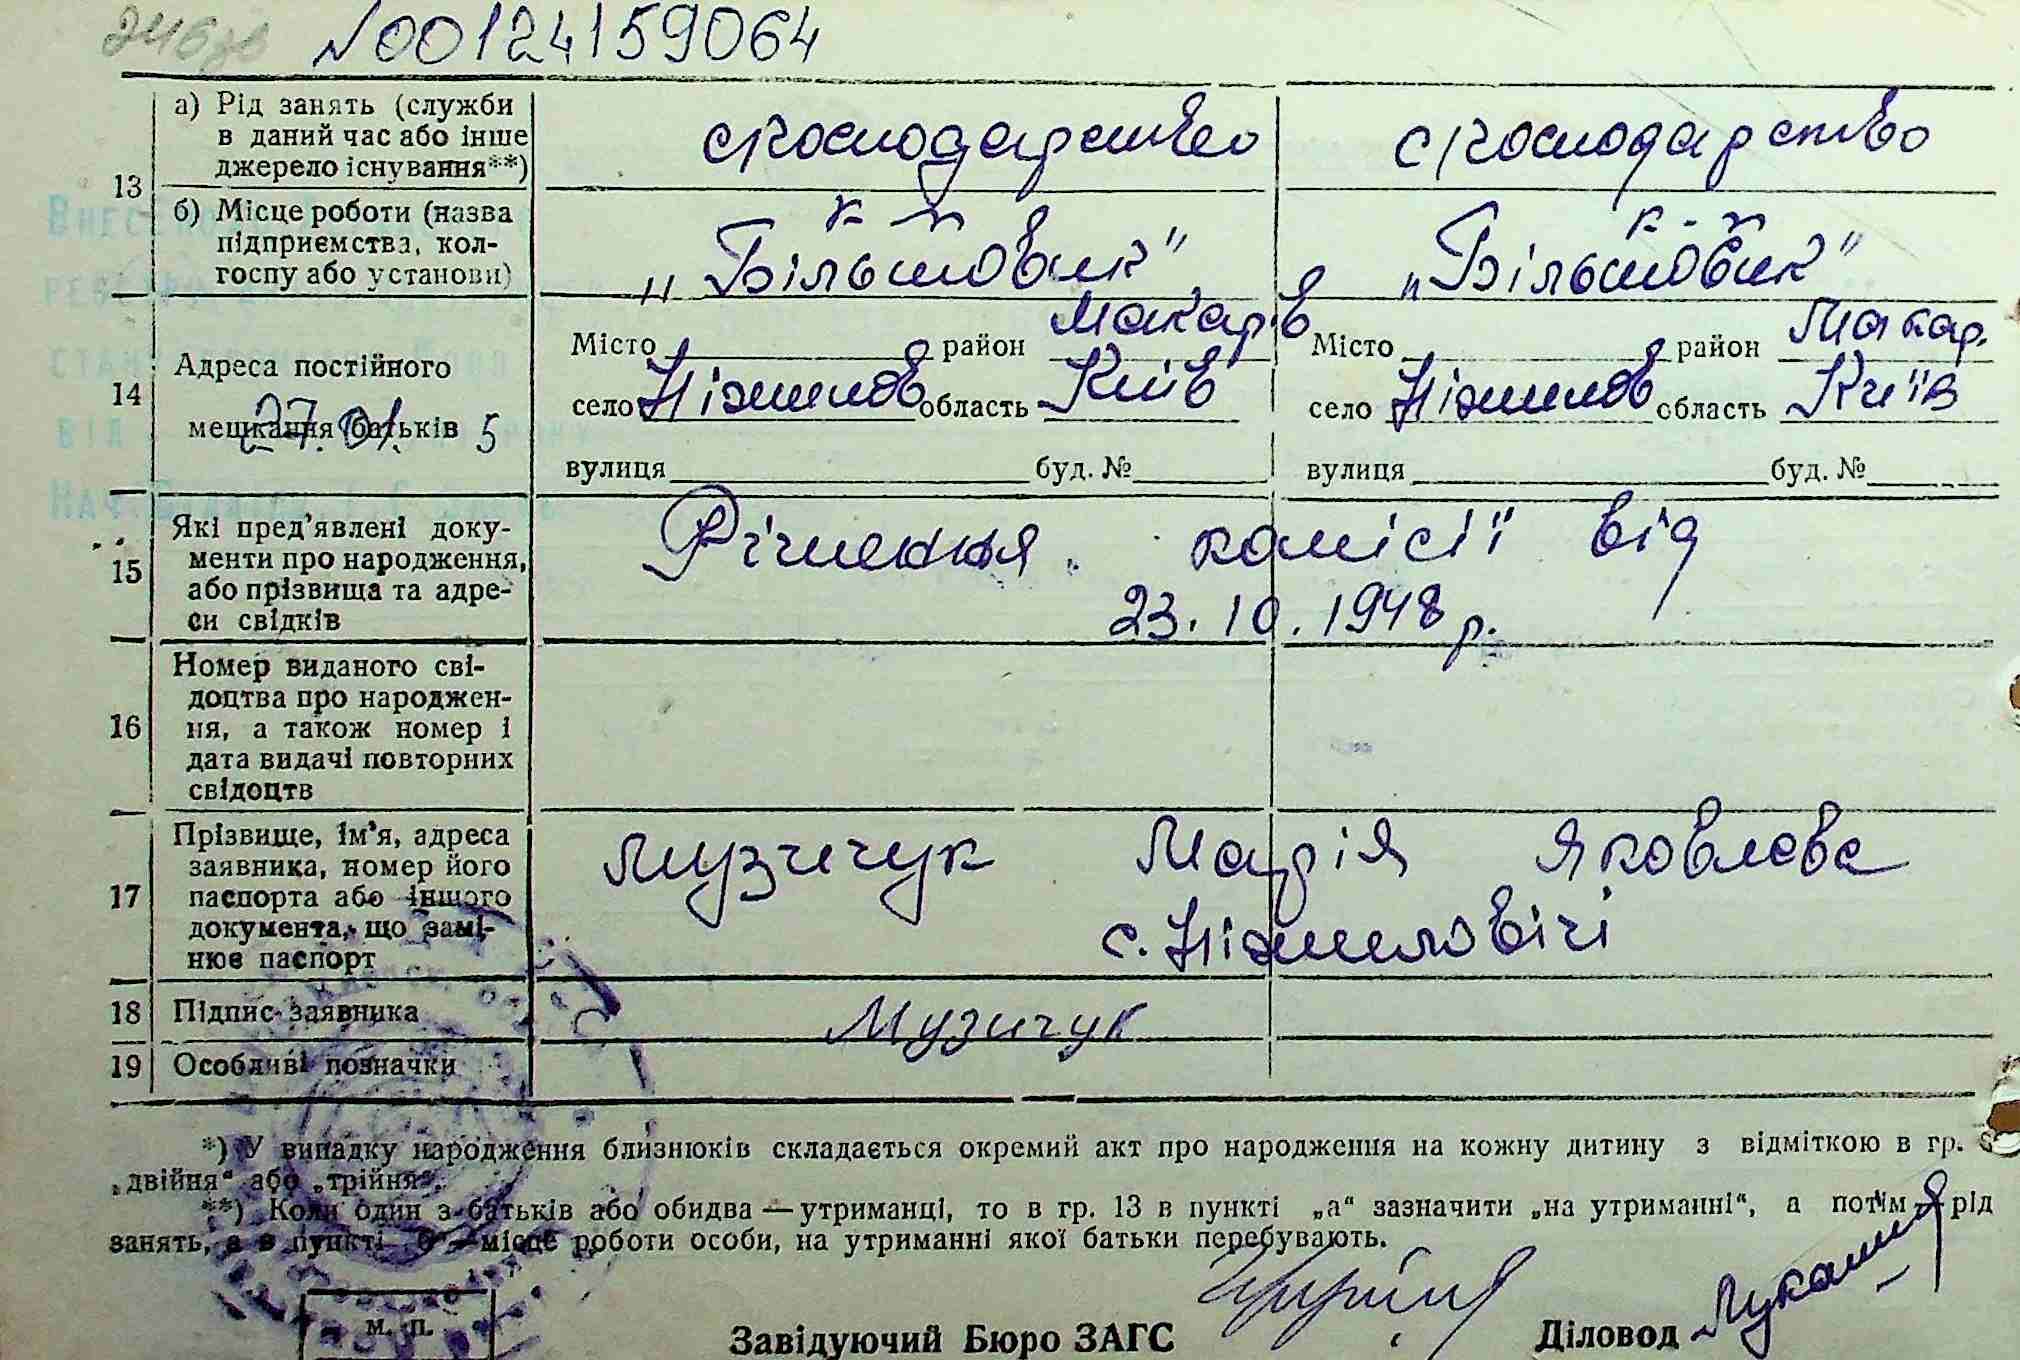 246зв N00124159064
13 а) Рід занять (служби в даний час або інше джерело існування**) с/господарство с/господарство
б) Місце роботи (назва підприємства, колгоспу або установи) к-п „Більшовик" к-п „Більшовик"
14 Адреса постійного мешкання батьків
27. 01. 5
Місто район Макарів Місто район Макар.
село Ніжилов область Київ село Ніжилов область Київ
вулиця буд. № вулиця буд. №
15 Які пред'явлені доку-
менти про народження,
або прізвища та адре-
си свідків
Рішення комісії від
23.10.1948 р.
16 Номер виданого сві-
доцтва про народжен-
ня, а також номер і
дата видачі повторних
свідоцтв
17 Прізвище, ім'я, адреса
заявника, номер його
паспорта або іншого
документа, що замі-
нює паспорт
Музичук Марія Яковлева
с. Ніжиловічі
18 Підпис заявника Музичук
19 Особливі позначки
*) У випадку народження близнюків складається окремий акт про народження на кожну дитину з відміткою в гр.
„двійня" або „трійня".
**) Коли один з батьків або обидва — утриманці, то в гр. 13 в пункті „а" зазначити „на утриманні", а потім — рід
занять, а в пункті „б" — місце роботи особи, на утриманні якої батьки перебувають.
м. п.
Завідуючий Бюро ЗАГС Діловод